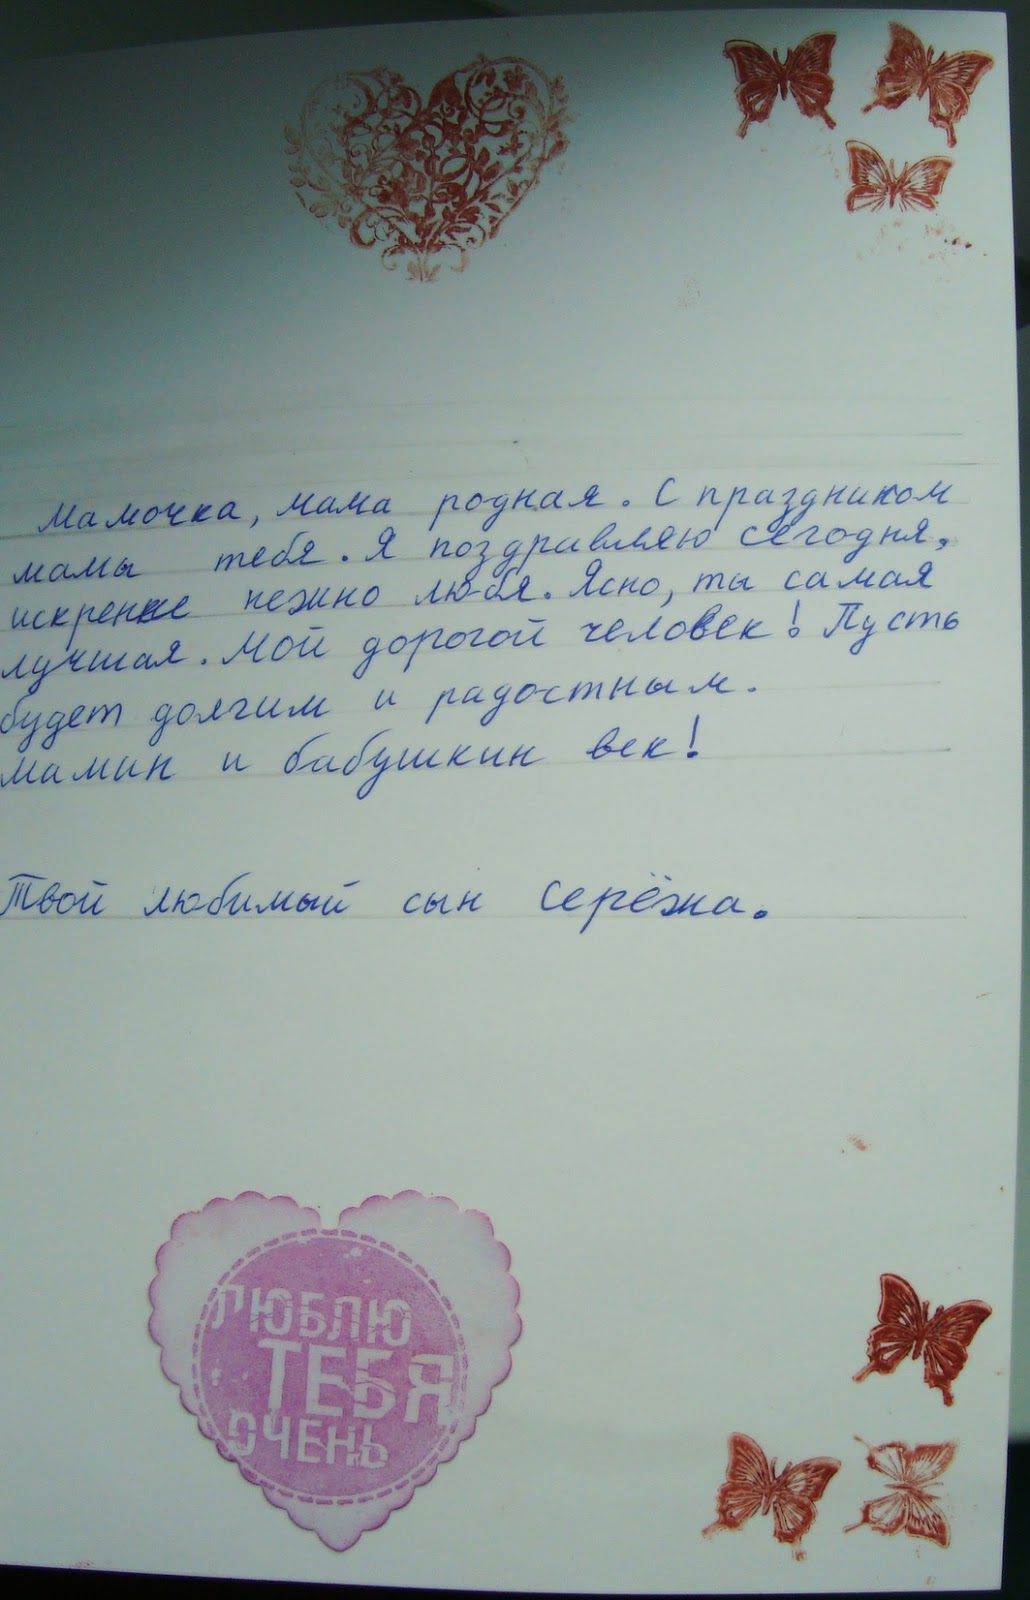 Мамочка, мама родная. С праздником
мамы тебя. Я поздравляю сегодня,
искренне нежно любя. Ясно, ты самая
лучшая. Мой дорогой человек! Пусть
будет долгим и радостным.
мамин и бабушкин век!
Твой любимый сын Серёжа.
ЛЮБЛЮ
ТЕБЯ
ОЧЕНЬ